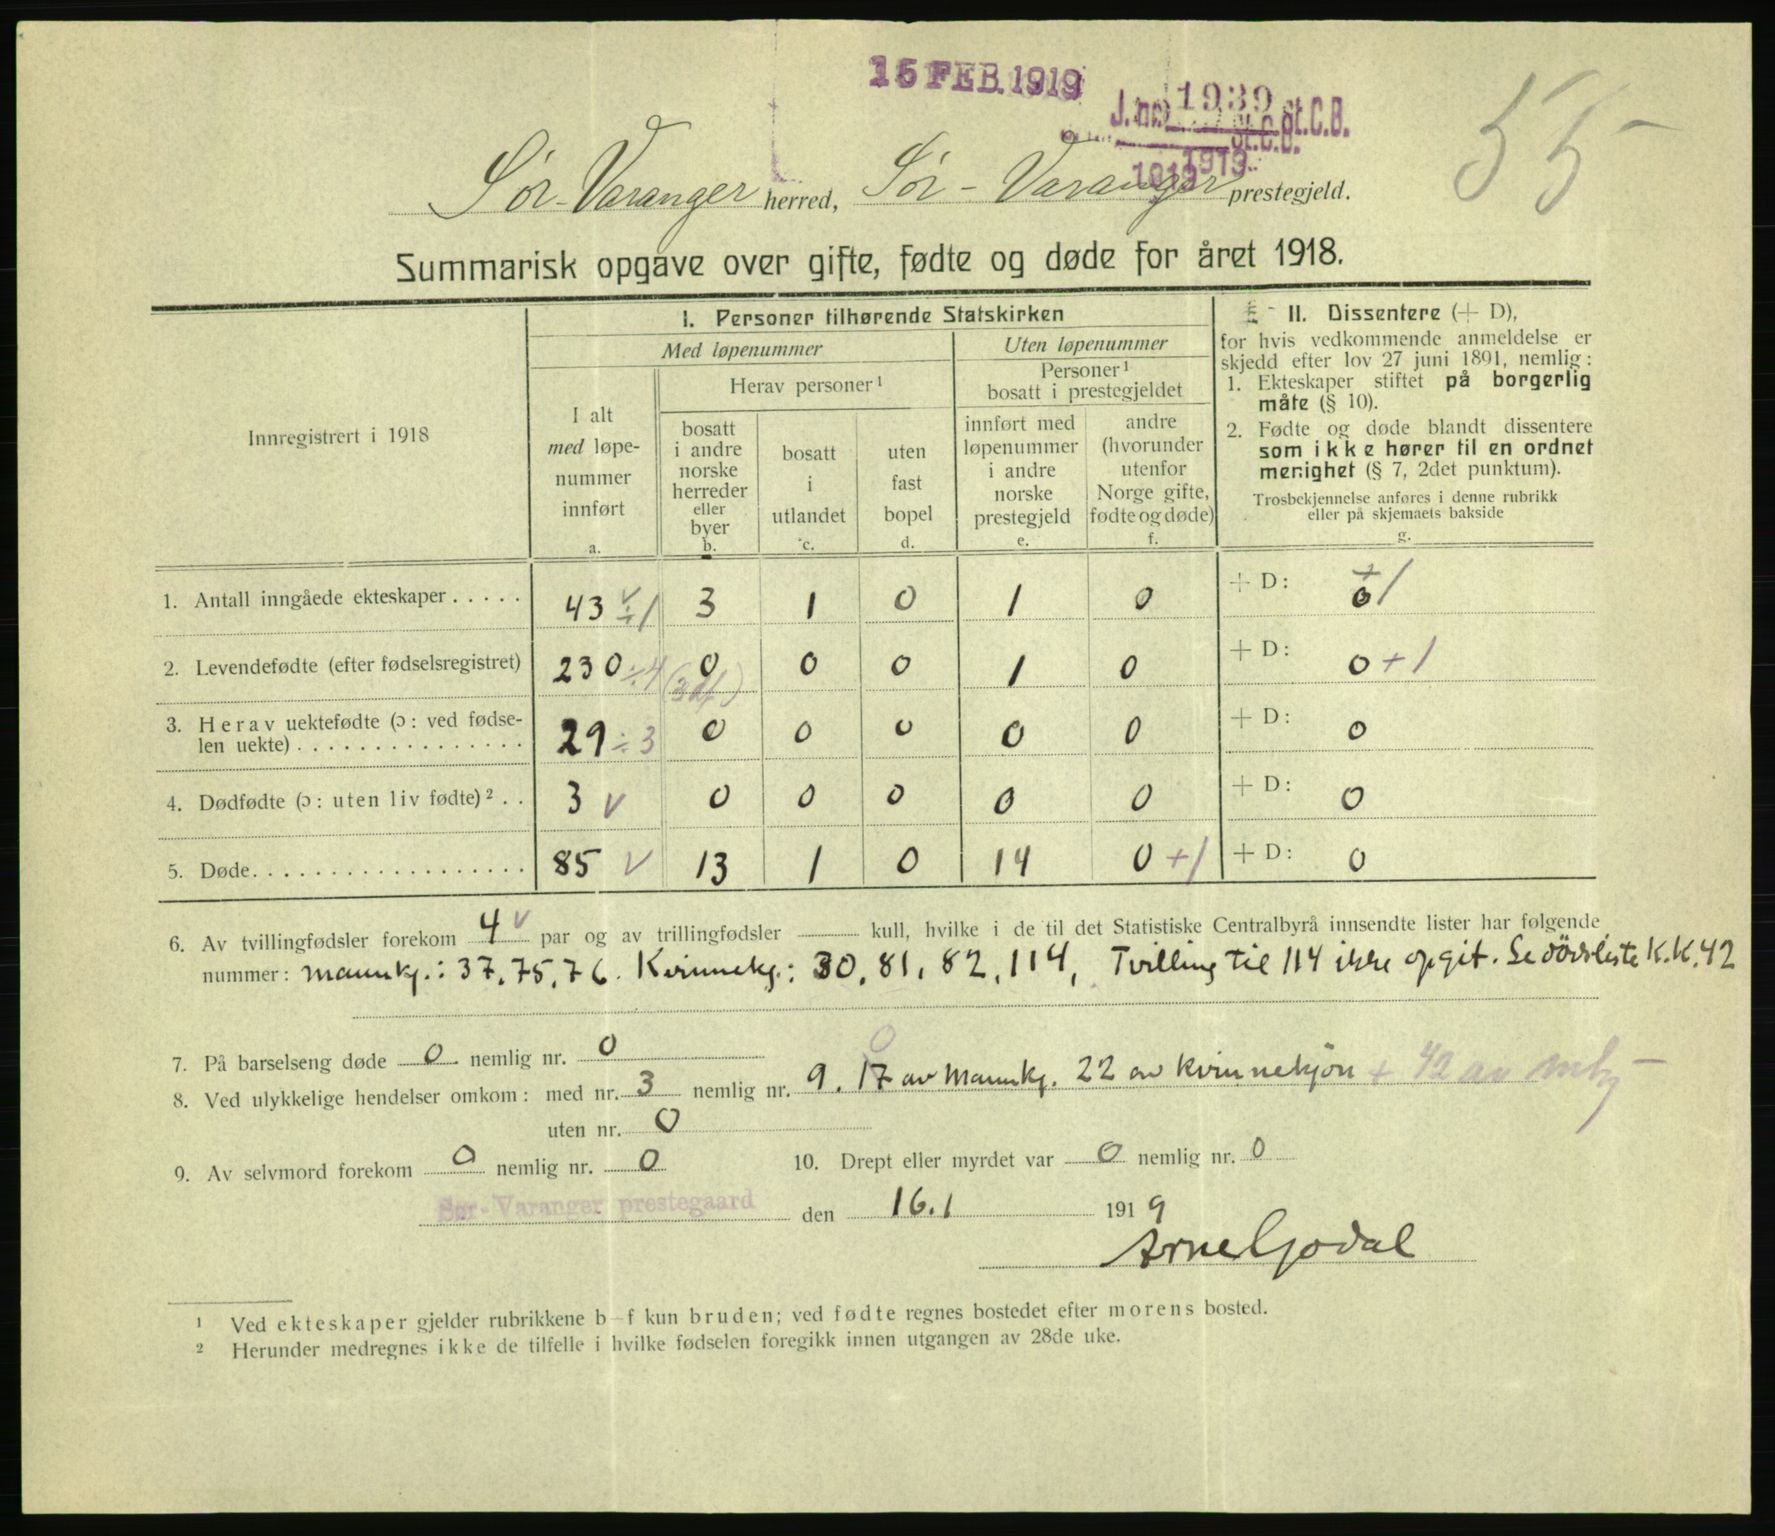 15 FEB. 1919
J. no. 1939 St.C.B.
St.C.B.
1919 1919
55
Sør-Varanger herred, Sør-Varanger prestegjeld.
Summarisk opgave over gifte, fødte og døde for året 1918.
Innregistrert i 1918
I. Personer tilhørende Statskirken
Med løpenummer
Uten løpenummer
I alt
med løpe-
nummer
innført
a.
Herav personer¹
bosatt
i andre
norske
herreder
eller
byer
b.
bosatt
i
utlandet
c.
uten
fast
bopel
d.
Personer¹
bosatt i prestegjeldet
innført med
løpenummer
i andre
norske
prestegjeld
e.
andre
(hvorunder
utenfor
Norge gifte,
fødte og døde)
f.
II. Dissentere (+ D),
for hvis vedkommende anmeldelse er
skjedd efter lov 27 juni 1891, nemlig:
1. Ekteskaper stiftet på borgerlig
måte (§ 10).
2. Fødte og døde blandt dissentere
som ikke hører til en ordnet
menighet (§ 7, 2det punktum).
Trosbekjennelse anføres i denne rubrikk
eller på skjemaets bakside
g.
1. Antall inngåede ekteskaper . . . . . 43 √ ÷1 3 1 0 1 0 + D: 0 +1
2. Levendefødte (efter fødselsregistret) 230 ÷4 0 0 0 1 0 + D: 0 +1
3. Herav uektefødte (ɔ: ved fødse-
len uekte) . . . . . . . . . . . . . . . 29 ÷3 0 0 0 0 0 + D: 0
4. Dødfødte (ɔ: uten liv fødte)² . . 3 √ 0 0 0 0 0 + D: 0
5. Døde. . . . . . . . . . . . . . . . . . 85 √ 13 1 0 14 0 +1 + D: 0
6. Av tvillingfødsler forekom 4 √ par og av trillingfødsler kull, hvilke i de til det Statistiske Centralbyrå innsendte lister har følgende
nummer: Mannkj.: 37, 75, 76. Kvinnekj.: 30, 81, 82, 114, Tvilling til 114 ikke opgit. Se dödsliste K.K. 42
7. På barselseng døde 0 nemlig nr. 0
8. Ved ulykkelige hendelser omkom: med nr. 3 nemlig nr. 9. 17 av Mannkj. 22 av kvinnekjön + 42 av mkj
uten nr. 0
9. Av selvmord forekom 0 nemlig nr. 0 10. Drept eller myrdet var 0 nemlig nr. 0
Sør-Varanger prestegaard den 16.1 1919
Arne Gjodal
¹ Ved ekteskaper gjelder rubrikkene b–f kun bruden; ved fødte regnes bostedet efter morens bosted.
² Herunder medregnes ikke de tilfelle i hvilke fødselen foregikk innen utgangen av 28de uke.